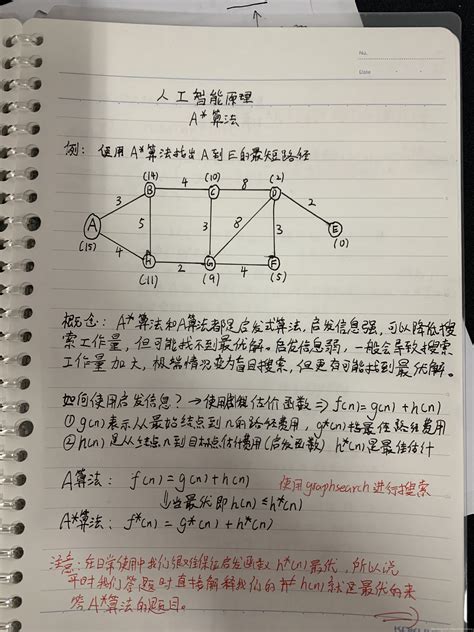 No.
Date
人工智能原理
A*算法
例: 使用A*算法找出A到E的最短路径
(14) (10) (2)
B 4 C 8 D
3 2
A 5 3 8 3 E
(15) 4 (0)
H 2 G 4 F
(11) (9) (5)
概念: A*算法和A算法都是启发式算法,启发信息强,可以降低搜
索工作量,但可能找不到最优解。启发信息弱,一般会导致搜索
工作量加大,极端情况变为盲目搜索,但更有可能找到最优解。
如何使用启发信息?→使用估价函数⇒f(n)=g(n)+h(n)
①g(n)表示从最始结点到n的路径费用, g*(n)指最佳路径费用
②h(n)是从结点n到目标点估计费用(启发函数) h*(n)是最佳估计
A算法: f(n)=g(n)+h(n) 使用graphsearch进行搜索
↓当最优即h(n)≤h*(n)
A*算法: f*(n)=g*(n)+h*(n)
注意: 在日常使用中我们很难保证启发函数h*(n)最优,所以说
平时我们答题时直接解释我们的h(n)就是最优的来
答A*算法的题目。